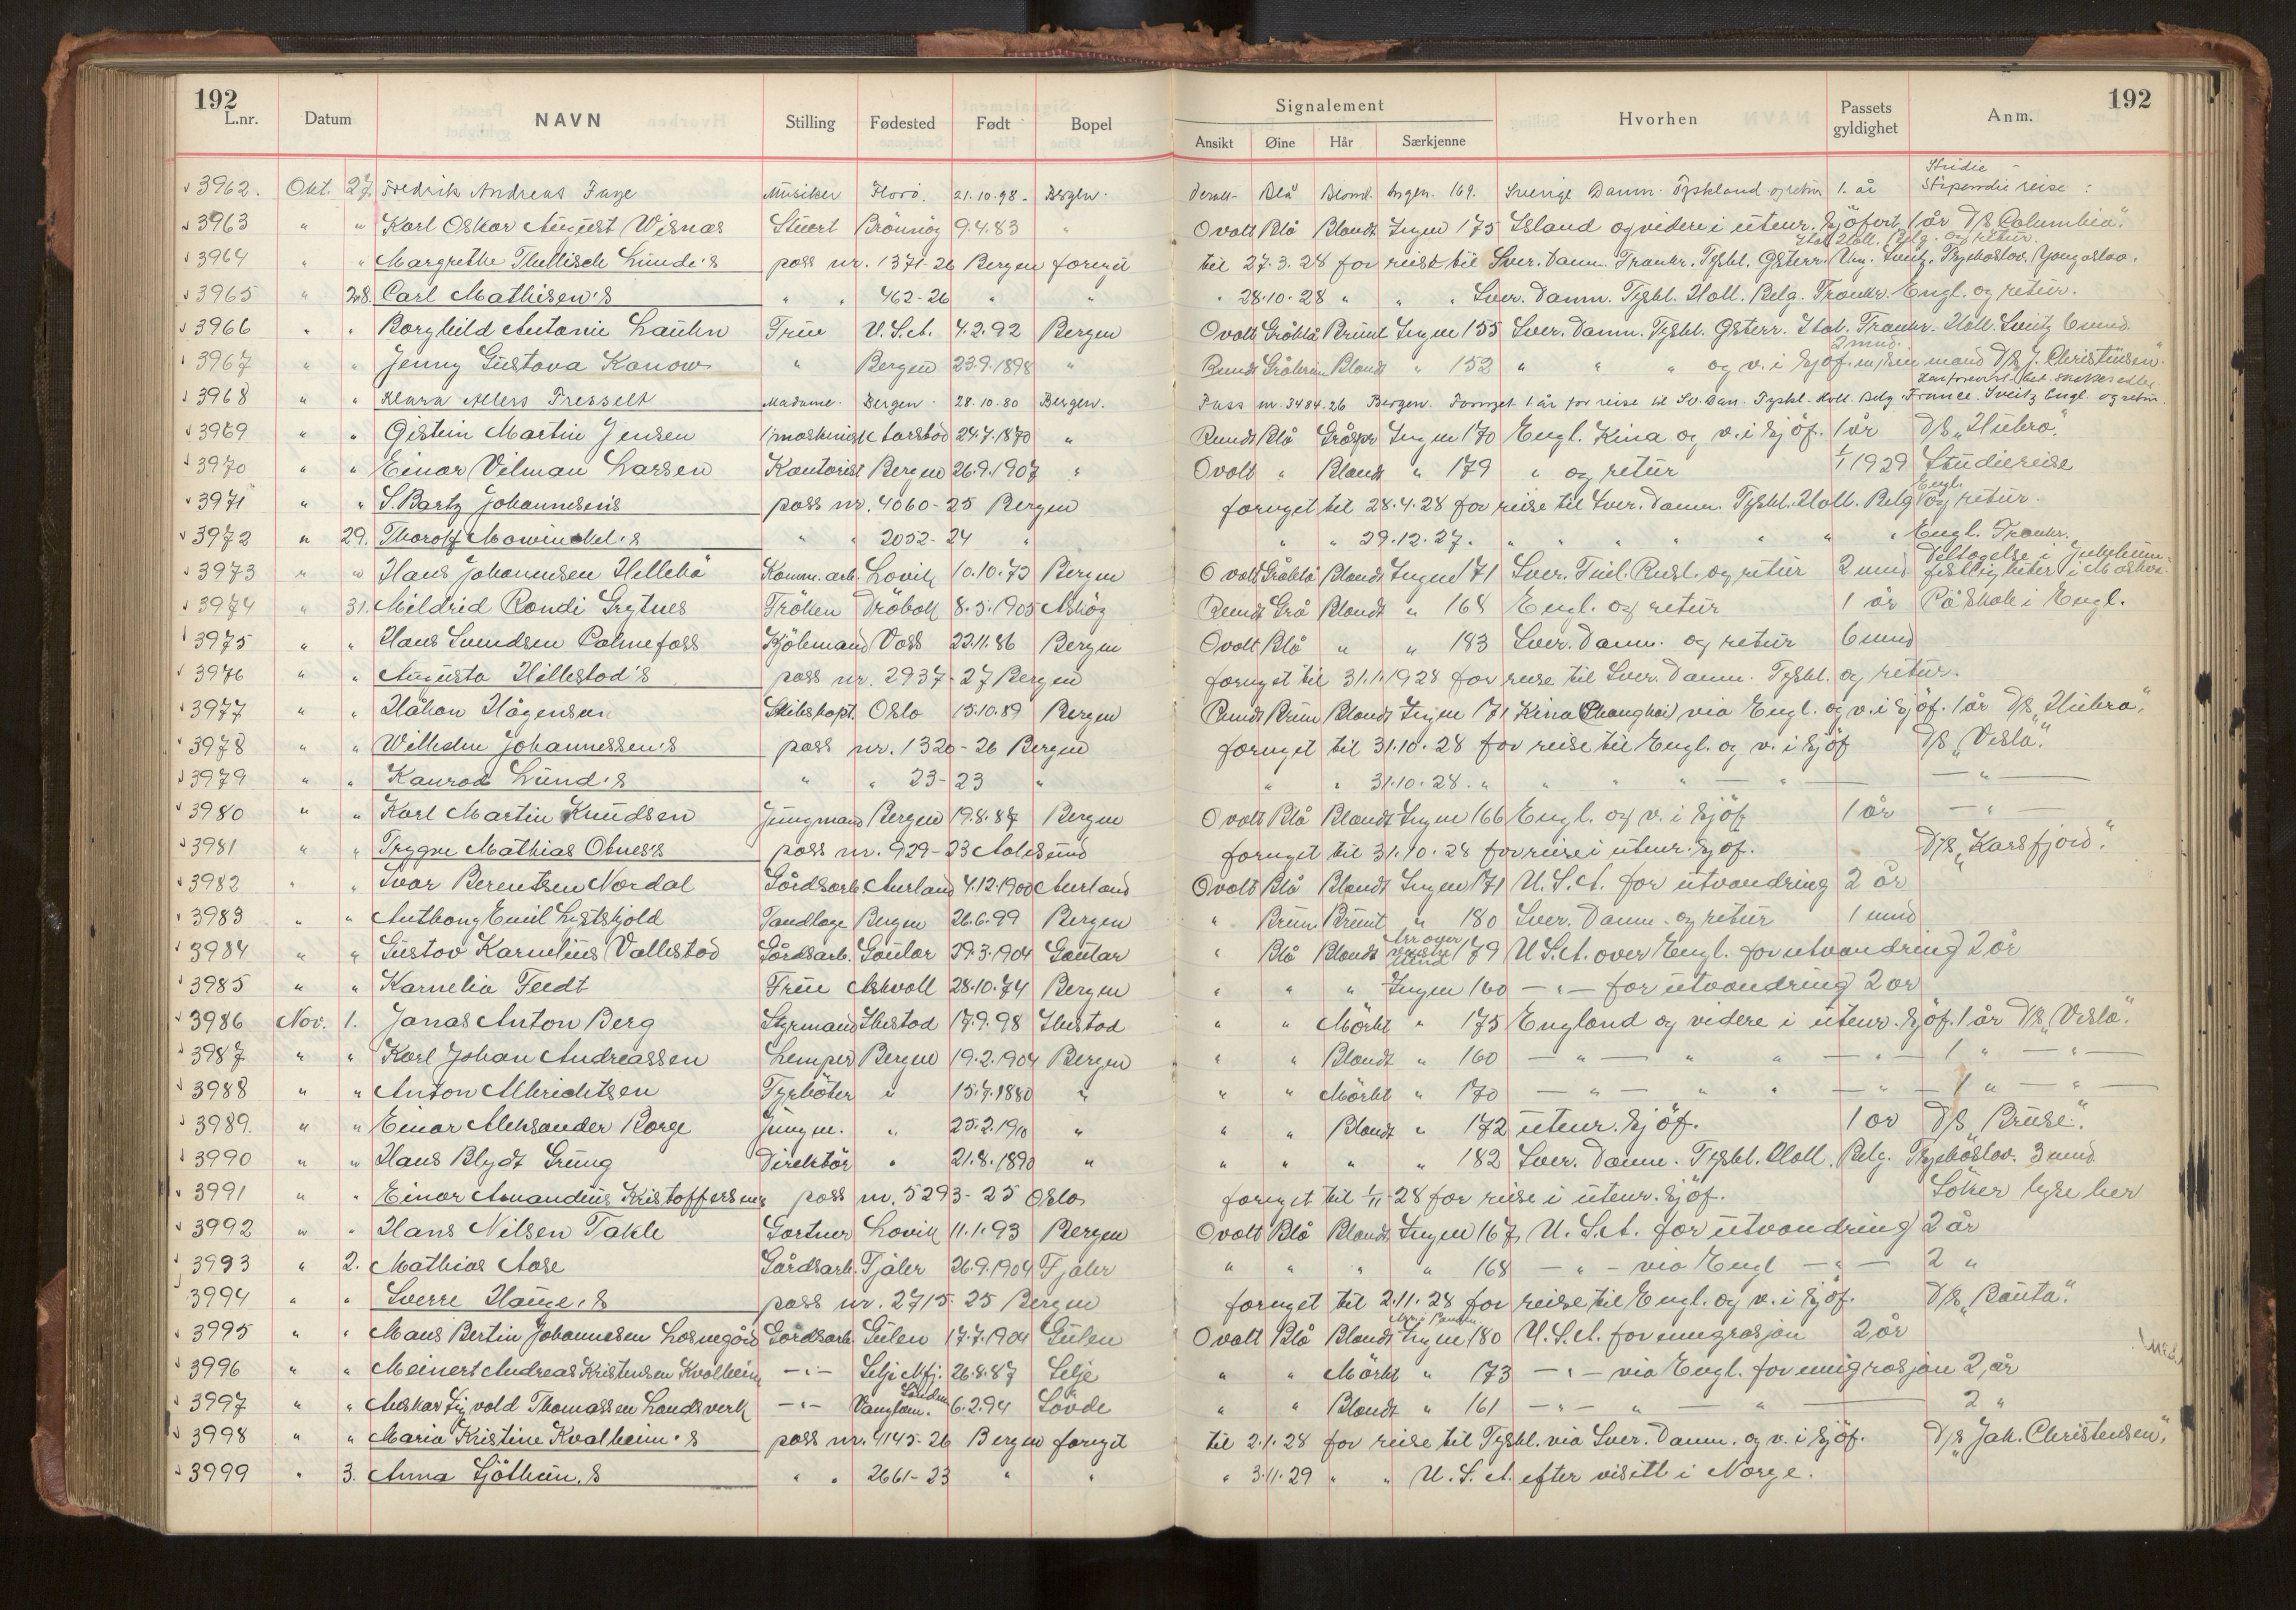 192
L.nr. Datum NAVN Stilling Fødested Født Bopel
Signalement
Ansikt Øine Hår Særkjenne Hvorhen Passets gyldighet Anm.
192
3962. Okt. 27. Fredrik Andreas Musiker Florö. 21.10.98. Bergen. Blå Blond. Ingen. 169. Sverige Danm. Tyskland og retur 1. år Stipendie reise
3963 " " Karl Oskar August Wisnæs Stuert Brönnöy 9.4.83 " Ovalt Blå Blondt Ingen 175 Island og videre i utenr. Sjöfart 1 år D/S "Columbia".
Ital. Holl. Belg. og retur.
3964 " " Margrethe Lunde's pass nr. 1371-26 Bergen fornyet til 27.3.28 for reise til Sver. Danm. Frankr. Tyskl. Österr. Ung. Sveitz. Tsjekoslov. Yougoslav.
3965 " 28. Carl Mathisen's " " 462-26 " " " 28.10.28 " " " Sver. Danm. Tyskl. Holl. Belg. Frankr. Engl. og retur.
3966 " " Borghild Antonie Lauhn Frue U.S.A. 4.2.92 Bergen Ovalt Gråblå Brunt Ingen 155 Sver. Danm. Tyskl. Österr. Ital. Frankr. Holl. Sveitz 6 mnd.
2 mnd.
3967 " " Jenny Gustava Konow " Bergen 23.9.1898 " Rundt Gråbrun Blondt " 152 " " " og v. i Sjöf. m/sin mand D/S "J. Christensen".
3968 " " Klara Allers Tresselt Madame. Bergen. 28.10.80 Bergen. Pass nr. 3484.26 Bergen. Fornyet 1 år for reise til Sv. Dan. Tyskl. Holl. Belg. France. Sveitz Engl. og retur
3969 " " Gistein Martin Jensen 1/maskinist 24.7.1870 " Rundt Blå Gråspr Ingen 170 Engl. Kina og v. i Sjöf. 1 år D/S "Hubro".
3970 " " Einar Vilman Larsen Kontorist Bergen 26.9.1907 " Ovalt " Blondt " 179 " og retur 1/1 1929 Studiereise
3971 " " S. Bartz Johannesen's pass nr. 4060-25 Bergen fornyet til 28.4.28 for reise til Sver. Danm. Tyskl. Holl. Belg. Engl. og retur.
3972 " 29. Thorolf Mowinckel's " " 2052-24 " " " 29.12.27. " " " " " " Engl. Frankr.
3973 " " Hans Johannesen Hellebö Komm. arb. Lovik 10.10.73 Bergen Ovalt Gråblå Blondt Ingen 171 Sver. Finl. Rusl. og retur 2 mnd. Deltagelse i Jubileum- festligheter i Moskva.
3974 " 31. Mildrid Rondi Grytnes Fröken Dröbak 8.5.1905 Askög Rundt Grå Blondt " 168 Engl. og retur 1 år På skole i Engl.
3975 " " Hans Svendsen Palmefoss Kjöbmand Voss 22.11.86 Bergen Ovalt Blå " " 183 Sver. Danm. og retur 6 mnd
3976 " " Augusta Hillestad's pass nr. 2937-27 Bergen fornyet til 31.1.1928 for reise til Sver. Danm. Tyskl. og retur.
3977 " " Håkon Hågensen Skibskapt. Oslo 15.10.89 Bergen Rundt Brun Blondt Ingen 171 Kina (Shanghai) via Engl. og v. i Sjöf. 1 år D/S "Hubro".
3978 " " Wilhelm Johannessen's pass nr. 1320-26 Bergen fornyet til 31.10.28 for reise til Engl. og v. i Sjöf D/S "Vesla".
3979 " " Konrad Lund's " " 23-23 " " " 31.10.28. " " " " — " — — " —
3980 " " Karl Martin Knudsen Jungmand Bergen 19.8.87 Bergen Ovalt Blå Blondt Ingen 166 Engl. og v. i Sjöf 1 år — " —
3981 " " Trygve Mathias Otnes's pass nr. 929-23 Aalesund fornyet til 31.10.28 for reise i utenr. Sjöf. D/S "Karsfjord".
3982 " " Ivar Berentsen Nordal Gårdsarb. Aurland 4.12.1900 Aurland Ovalt Blå Blondt Ingen 171 U.S.A. for utvandring 2 år
3983 " " Anthony Emil Lystskjold Tandlæge Bergen 26.6.99 Bergen " Brun Brunt " 180 Sver. Danm. og retur 1 mnd
3984 " " Gustav Karnelius Vallestad Gårdsarb. Gaular 29.3.1904 Gaular " Blå Blondt Arr over venstre 179 U.S.A. over Engl. for utvandring 2 år
3985 " " Karnelia Feedt Frue Askvoll 28.10.74 Bergen " " " Ingen 160 — " — for utvandring 2 år
3986 Nov. 1. Jonas Anton Berg Styrmand Ibestad 17.9.98 Ibestad " " Mörkt " 175 England og videre i utenr. Sjöf. 1 år D/S "Vesla".
3987 " " Karl Johan Andreassen Lemper Bergen 19.2.1904 Bergen " " Blondt " 160 — " — " " — " — 1 " — " —
3988 " " Anton Albrichtsen Fyrböter " 15.7.1880 " " " Mörkt " 170 — " — " " — " — 1 " — " —
3989. " " Einar Aleksander Borge Jungm. " 25.2.1910 " " " Blondt " 172 utenr. Sjöf. 1 år D/S "Bruse".
3990 " " Hans Blydt Grung Direktör " 21.8.1890 " " " " " 182 Sver. Danm. Tyskl. Holl. Belg. Tsjekoslov. 3 mnd
3991 " " Einar Amandius Kristoffersen's pass nr. 5293-25 Oslo fornyet til 1/11-28 for reise i utenr. Sjöf. Söker hyre her
3992 " " Hans Nilsen Takle Gartner Lovik 11.1.93 Bergen Ovalt Blå Blondt Ingen 167 U.S.A. for utvandring 2 år
3993 " 2. Mathias Aase Gårdsarb. Fjaler 26.9.1904 Fjaler " " " " 168 — " — via Engl — " — 2 "
3994 " " Sverre Hauge's pass nr. 2715-25 Bergen fornyet til 2.11.28 for reise til Engl. og v. i Sjöf. D/S "Bauta".
3995 " " Mons Bertin Johannesen Losnegård Gårdsarb. Gulen 17.7.1904 Gulen Ovalt Blå Blondt Ingen 180 U.S.A. for emigrasjon 2 år
3996 " " Meinert Andreas Kristensen Kvalheim — " — Selje Nfj. 26.8.87 Selje " " Mörkt " 173 — " — via Engl. for emigrasjon 2 år
3997 " " Askar Sigvold Thomassen Landsverk — " — 6.2.94 Sövde " " Blondt " 161 — " — " — " — 2 "
3998 " " Maria Kristine Kvalheim's pass nr. 4145-26 Bergen fornyet til 2.1.28 for reise til Tyskl. via Sver. Danm. og v. i Sjöf. D/S "Jak. Christensen".
3999 " 3. Anna Sjötheim's " " 2661-23 " " " 3.11.29 " " U.S.A. efter visitt i Norge.